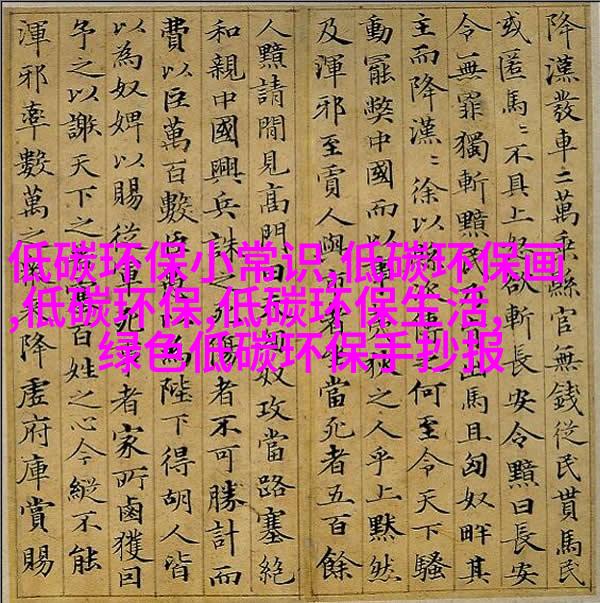 低碳环保小常识,低碳环保画
,低碳环保,低碳环保生活,
绿色低碳环保手抄报
降漢發車二萬乘縣官無錢從民貰馬民
或匿馬〻不具上怒欲斬長安令黯曰長安
令無罪獨斬黯民出馬且匈奴畔其
主而降漢〻徐以縣次何至令天下騷
動罷弊中國而以事夷狄之人乎上默然
及渾邪至賈人與市者當死者五百餘
人黯請閒見高門曰匈奴攻當路塞絕
和親中國興兵誅之死傷者不可勝計而
費以巨萬百數臣為陛下得胡人皆
以為奴婢以賜從軍死者家所鹵獲因
予之以謝天下之塞百姓之心今縱不能
渾邪率數萬之來降虛府庫賞賜